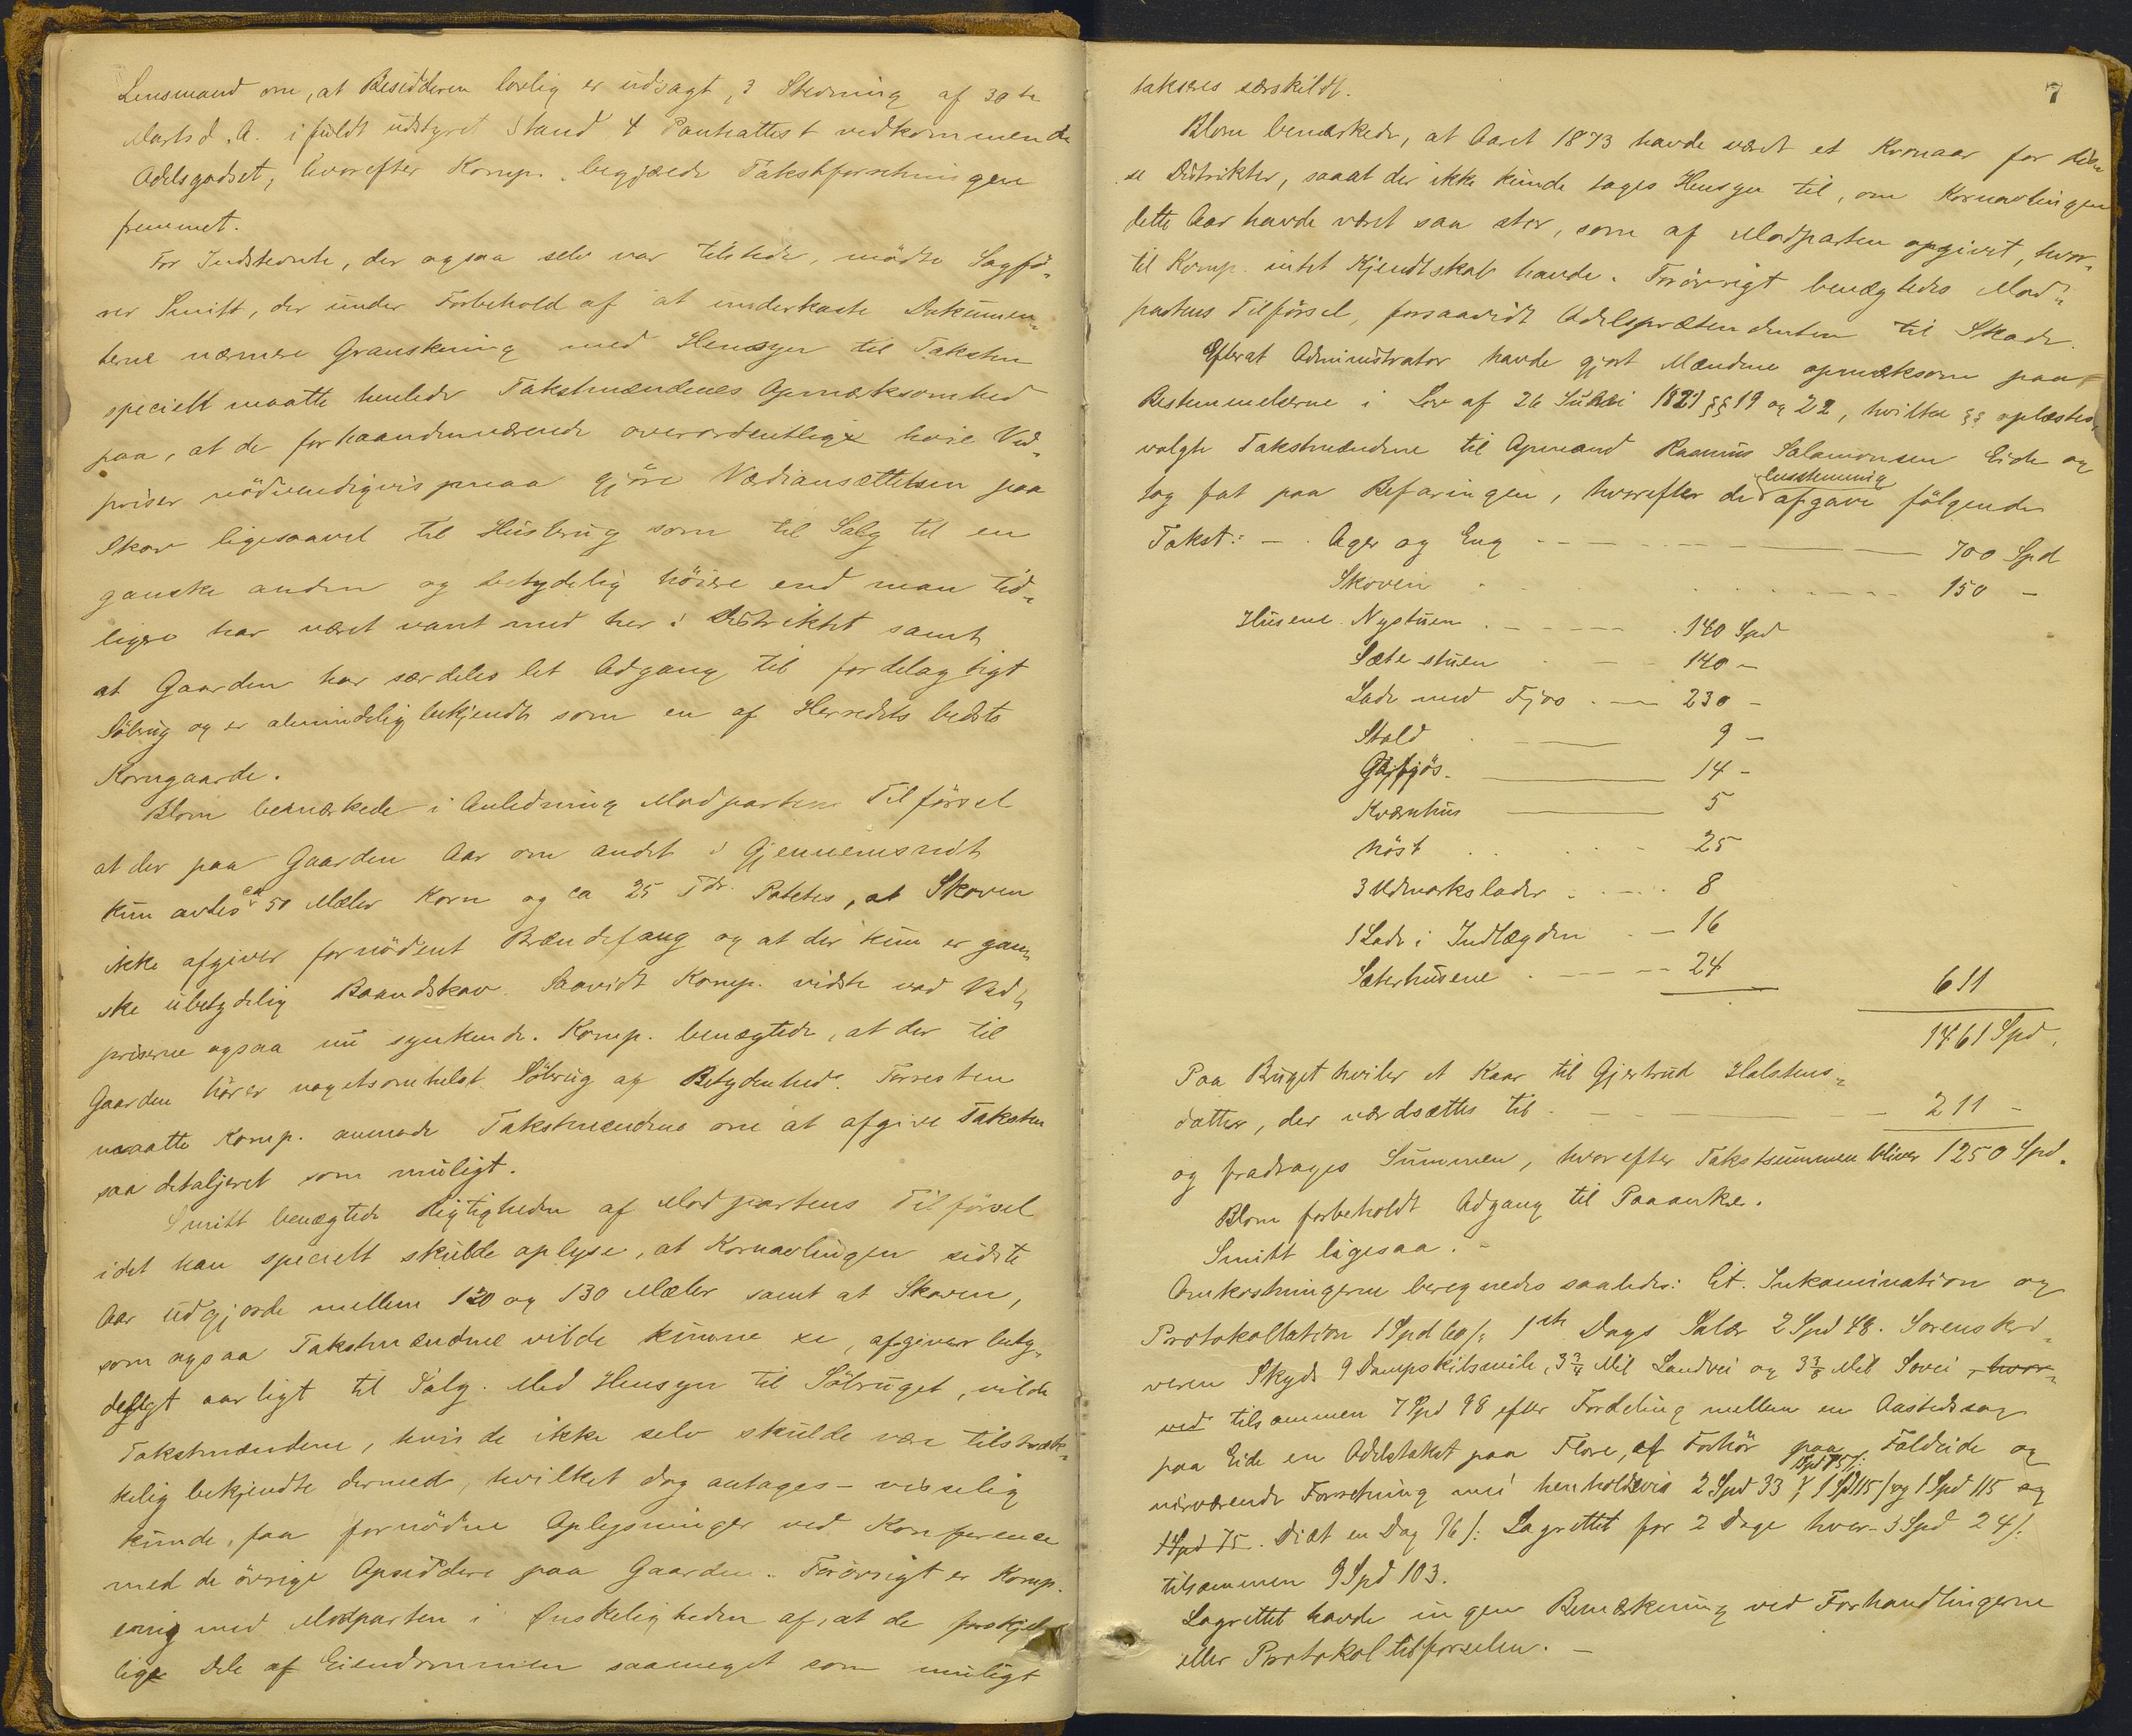 Lensmand om, at Besidderen lovlig er udsagt, 3 Stevning af 30te
Marts d. A. i fuldt udstyret Stand 4 Panteattest vedkommende
Odelsgodset, hvorefter Komp. begjærede Takstforretningen
fremmet.
For Indstevnte, der ogsaa selv var tilstede, mödte Sagfö-
rer Smitt, der under Forbehold af at underkaste Dokumen-
terne nærmere Granskning med Hensyn til Taksten
specielt maatte henlede Takstmændenes Opmærksomhed
paa, at de forhaandenværende overordentlige höie Ved-
priser nödvendigvis maa gjöre Værdiansættelsen paa
Skov ligesaavel til Husbrug som til Salg til en
ganske anden og betydelig höiere end man tid-
ligere har været vant med her i Distriktet samt
at Gaarden har særdeles let Adgang til fordelagtigt
Söbrug og er almindelig bekjendt som en af Herredets bedste
Korngaarde.
Blom bemærkede i Anledning Modpartens Tilförsel
at der paa Gaarden Aar om andet i Gjennemsnit
kun avles ca 50 Mæler Korn og ca 25 Tdr. Potetes, at Skoven
ikke afgiver fornödent Brændefang og at der kun er gan-
ske ubetydelig Baandskov. Saavidt Komp. vidste var Ved-
priserne ogsaa nu synkende. Komp. benægtede, at der til
Gaarden hörer nogetsomhelst Söbrug af Betydenhed. Forresten
maatte Komp. anmode Takstmændene om at afgive Taksten
saa detaljeret som muligt.
Smitt benægtede Rigtigheden af Modpartens Tilförsel
idet han specielt skulde oplyse, at Kornavlingen sidste
Aar udgjorde mellem 120 og 130 Mæler samt at Skoven,
som ogsaa Takstmændene vilde kunne se, afgiver bety-
deligt aarligt til Salg. Med Hensyn til Söbruget, vilde
Takstmændene, hvis de ikke selv skulde være tilstræk-
kelig bekjendte dermed, hvilket dog antages - visselig
kunde faa fornödne Oplysninger ved Konference
med de övrige Opsiddere paa Gaarden. Forövrigt er Komp.
enig med Modparten i Önskeligheden af, at de forskjel-
lige Dele af Eiendommen saameget som muligt
7
takseres særskildt.
Blom bemærkede, at Aaret 1873 havde været et Kornaar for dis-
se Distrikter, saaat der ikke kunde tages Hensyn til, om Kornavlingen
dette Aar havde været saa stor, som af Modparten opgivet, hvor-
til Komp. intet Kjendtskab havde. Forövrigt benægtedes Mod-
partens Tilförsel, forsaavidt Odelsprætendenten til Skade.
Efterat Administrator havde gjort Mændene opmærksom paa
Bestemmelserne i Lov af 26 Juni 1821 §§ 19 og 22, hvilke §§ oplæstes,
valgte Takstmændene til Opmand Rasmus Salamonsen Eide og
tog fat paa Befaringen, hvorefter de enstemmig afgave fölgende
Takst: - Ager og Eng - 700 Spd
Skoven - 150 -
Husene. Nystuen - 140 Spd
Sætestuen - 140 -
Lade med Fjøs - 230 -
Stald - 9 -
Gjetfjös - 14 -
Kværnhus 5
Nöst - 25
3 Udmarkslader - 8
1 Lade i Indlægden - 16
Sæterhusene - 24
611
1461 Spd.
Paa Bruget hviler et Kaar til Gjertrud Halstens-
datter, der værdsættes til - 211 -
og fradrages Summen, hvorefter Takstsummen bliver 1250 Spd.
Blom forbeholdt Adgang til Paaanke.
Smitt ligesaa. -
Omkostningerne beregnedes saaledes: Et. Inkamination og
Protokollation 1 Spd 60 /: 1ste Dags Salær 2 Spd 48. Sorenskri-
veren Skyds 9 Dampskibsmile, 3 3/4 Mil Landvei og 3 3/8 Mil Sovei, hvor-
ved tilsammen 7 Spd 98 efter Fordeling mellem en Aastedssag
paa Eide en Odelstakst paa Flore, af Forhör paa Faldeide og
nærværende Forretning med henholdsvis 2 Spd 33 /, 1 Spd 75 /: 1 Spd 115 / og 1 Spd 115 og
1 Spd 75. Diæt en Dag 96 /: Lagrettet for 2 Dage hver 3 Spd 24 /:
tilsammen 9 Spd 103.
Lagrettet havde ingen Bemærkning ved Forhandlingerne
eller Protokoltilforselen. -